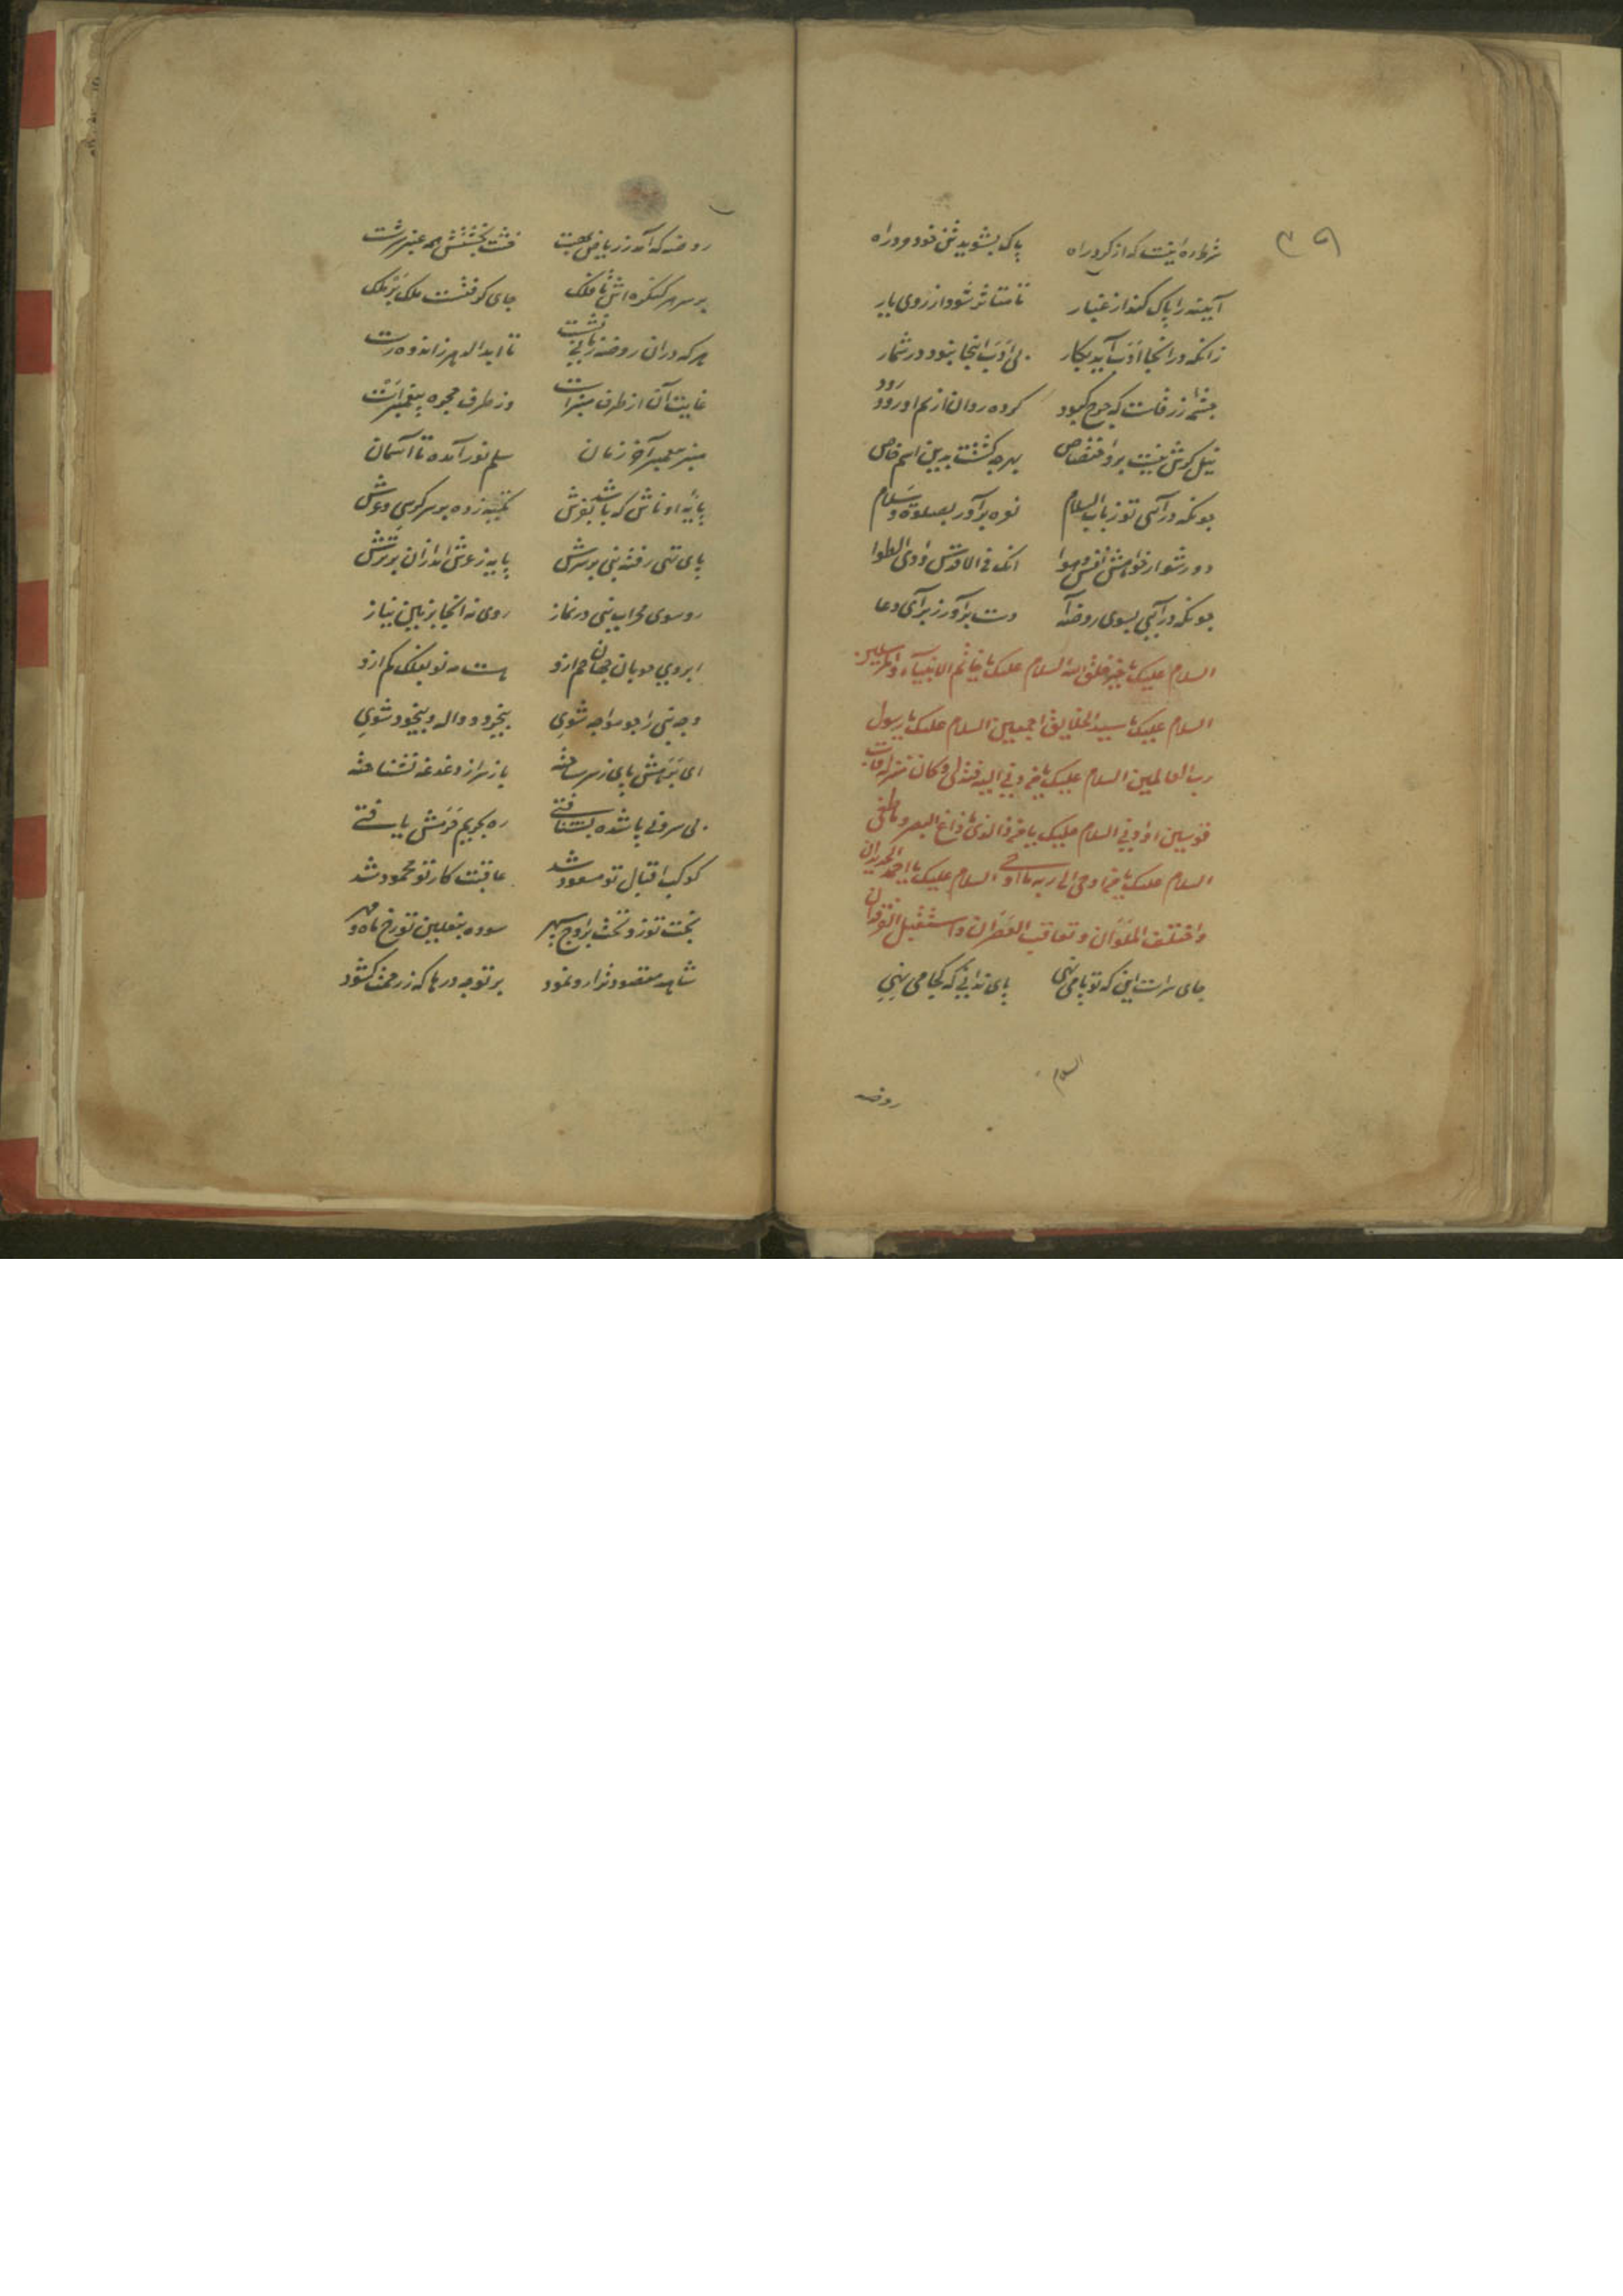 ۳۹
شرط ره اینست که از گرد راه پاک بشوید تن خود مرد راه
آیینه را پاک کند از غبار تا متأثر شود از روی یار
زانکه در انجا ادب آید بکار بی ادب اینجا نبود در شمار
چشمه زرقاست که چرخ کبود کرده روان از نم او رود رود
نیل کرش نیست برو اختصاص بهر چه گشتت بدین اسم خاص
چونکه درآئی تو ز باب السلام نعره برآور بصلوة و سلام
دور شو از خواهش نفس و هوا انک فی الاقدس وادی الطوا
چونکه درآیی بسوی روضه دست برآور ز برای دعا
السلام علیک یا خیر خلق الله السلام علیک یا خاتم الانبیاء والمرسلین
السلام علیک یا سید الخلایق اجمعین السلام علیک یا رسول
رب العالمین السلام علیک یا من دنی الیه فتدلی و کان منزله قاب
قوسین او ادنی السلام علیک یا من ما زاغ البصر و ما طغی
السلام علیک یا من اوحی الی ربه ما اوحی السلام علیک یا احمد
واختلف الملوان وتعاقب العصران واستقبل الفرقدان
جای سرست این که تو پا می نهی پای ندانی که کجا می نهی
السلام
روضه
روضه که آمد ز ریاض بهشت خشت بخشتش همه عنبر سرشت
بر سر هر کنگره اش تا فلک جای کو فتست ملک بر ملک
هر که دران روضه زمانی نشست تا ابد الدهر ز اندوه رست
غایت آن از طرف منبرست وز طرف حجره پیغمبرست
منبر پیغمبر آخر زمان سلم نور آمده تا آسمان
پایه او تاش که باشد بفرش تکیه زده بر سر کرسی و عرش
پای نبی رفته بنی بر سرش پایه ز عرش آمد ازان برترش
رو سوی محراب نبی در نماز روی نه انجا بزمین نیاز
ابروی خوبان جهان خم ازو هست مه نو بفلک کم ازو
وجه نبی را چو مواجه شوی بیخرد و واله و بیخود شوی
ای برهش پای ز سر ساخته باز سر از دغدغه نشناخته
بی سر و بی پا شده بشتافتی ره بحریم حرمش یافتی
کوکب اقبال تو مسعود شد عاقبت کار تو محمود شد
بخت تو زد تخت بر اوج سپهر سوده بنعلین تو رخ ماه و مهر
شاهد مقصود ترا رو نمود بر تو چه درها که ز رحمت کشود